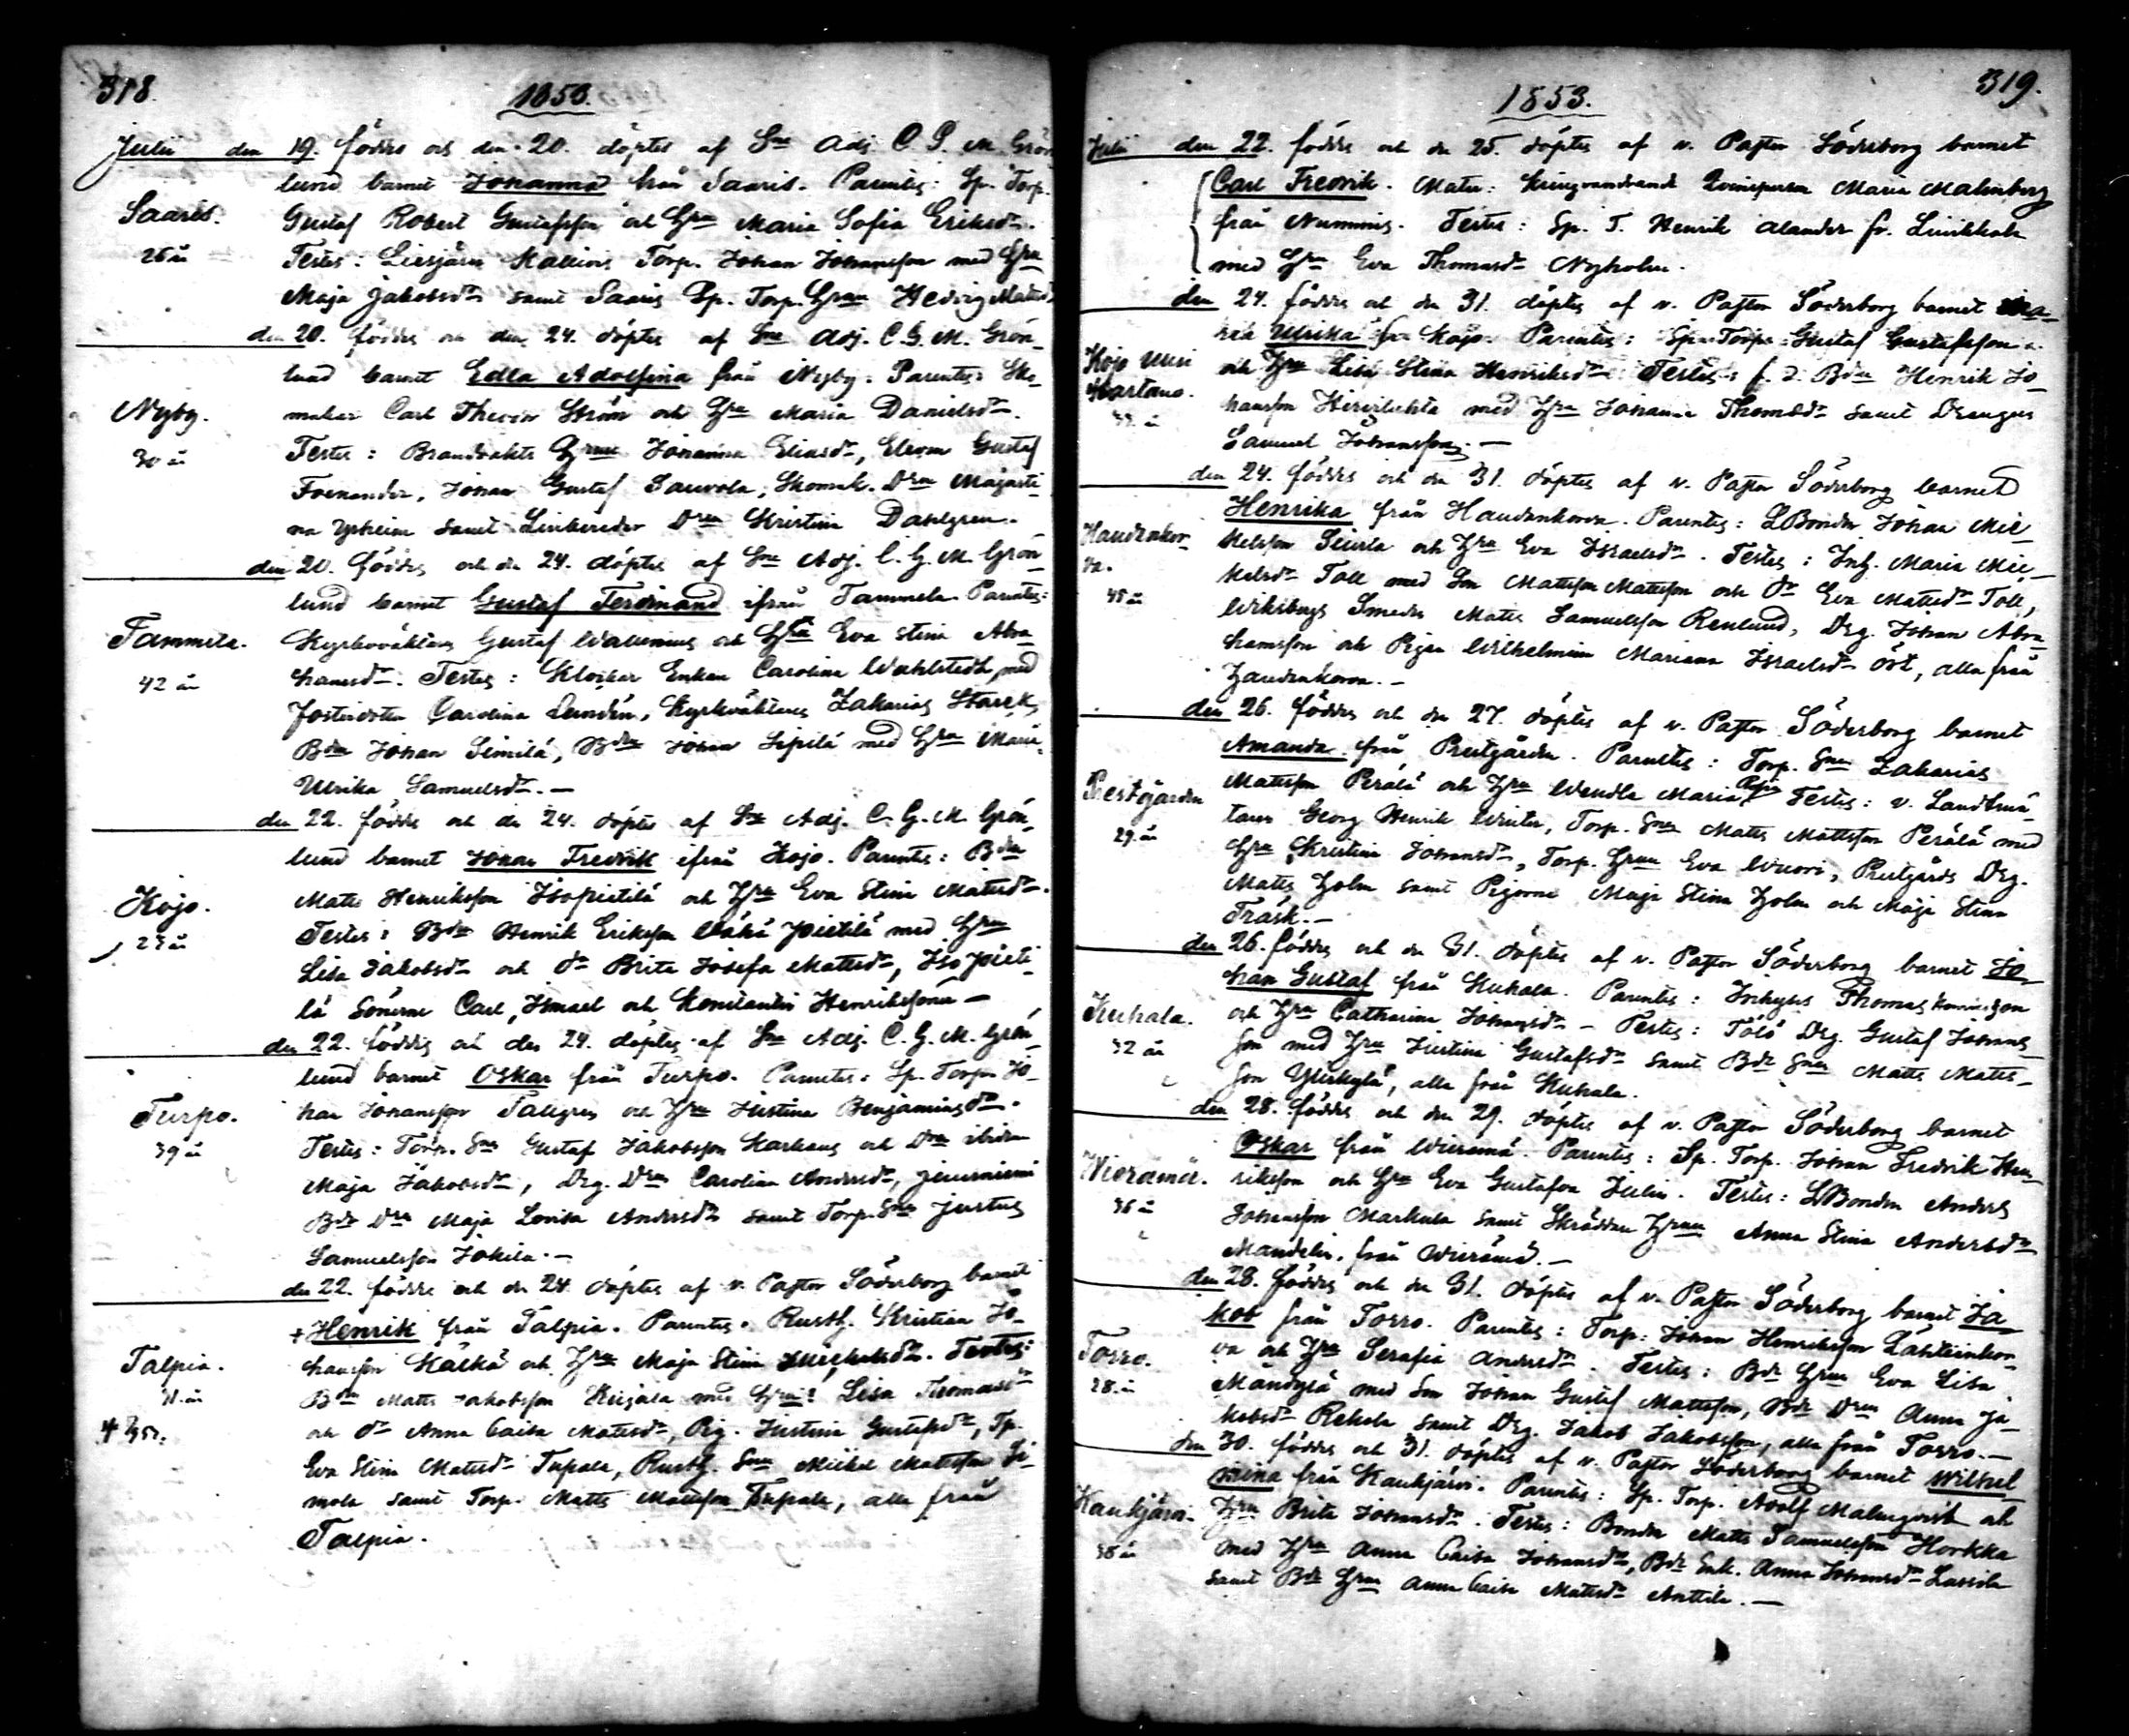 318.
1853.
Julii den 19. föddes och den 20. döptes af Sac Adj. C. G. M. Grön
lund barnet Johanna från Saaris. Parentes: Sp. Torp.
Saaris. Gustaf Robert Gustafsson och Hru Maria Sofia Eriksdr.
26 år Testes: Liesjärvi Torp. Johan Johansson med Hru
Maja Jakobsdr samt Saaris Sp. Torp. Hrun Hedvig Mattsdr
den 20. föddes och den 24. döptes af Sac Adj. C. G. M. Grön-
lund barnet Edla Adolfina från Nyby. Parentes: Sko-
Nyby. makar Carl Theodor Ström och Hru Maria Danielsdr.
30 år Testes: Brandvakts Hrun Johanna Eliasdr, Eleven Gustaf
Fornander, Johan Gustaf Sauvola, Skomak. Drn Majasti-
na samt Linberedar Drn Kristin Dahlgren.
den 20. föddes och den 24. döptes af Sac Adj. C. G. M. Grön-
lund barnet Gustaf Ferdinand ifrån Tammela. Parentes:
Tammela. Kyrkoväktaren Gustaf Wallenius och Hru Eva Stina Abra-
42 år hamsdr. Testes: Klockar Enkan Carolina Wahlstedt med
fosterdottern Carolina Lundén, Kyrkväktaren Zakarias Starck,
Bdn Johan Similä, Bdn Johan Sipilä med Hru Maria
Ulrika Samuelsdr.-
den 22. föddes och den 24. döptes af Sac Adj. C. G. M. Grön-
lund barnet Johan Fredrik ifrån Kojo. Parentes: Bdn
Kojo. Matts Henriksson Isopietilä och Hru Eva Stina Mattsdr.
23 år Testes: Bdn Henrik Eriksson Vähä Pietilä med Hru
Lisa Jakobsdr och dr Brita Josefa Mattsdr, Iso Pieti-
lä Sönerne Carl, Ismael och Konstantin Henrikssöner -
den 22. föddes och den 24. döptes af Sac Adj. C. G. M. Grön-
lund barnet Oskar från Turpo. Parentes: Sp. Torpn Jo-
Turpo. han Johansson Tallgren och Hru Justina Benjaminsdr.
39 år Testes: Torp. Sn Gustaf Jakobsson Karhaus och Drn ibidm
Maja Jakobsdr, Drg. Drn Carolina Andersdr,
Bde Drn Maja Lovisa Andersdr samt Torp. Sn Justus
Samuelsson Jokila.-
den 22. föddes och den 24. döptes af v. Pastor Söderborg barnet
+ Henrik från Talpia. Parentes: Rusth. Kristian Jo-
Talpia. hansson Kälkä och Hru Maja Stina Michelsdr. Testes:
Bdn Matts Jakobsson Kuijala med Hru Lisa Thomasdr
och dr Anna Caisa Mattsdr, Pig. Justina Gustafsdr, Tp.
Eva Stina Mattsdr Tupala, Rusth. Sn Mickel Mattsson Si-
mola samt Torp. Matts Mattsson Tupala, alla från
Talpia.
319.
1853.
Julii den 22. föddes och den 25. döptes af v. Pastor Söderborg barnet
Carl Fredrik. Mater: Kringvandrande Qvinsperson Maria Malmberg
från Nummis. Testes: Sp. T. Henrik Alander fr. Liinikkala
med Hru Eva Thomasdr Nyholm.
den 24. föddes och den 31. döptes af v. Pastor Söderborg barnet Ma-
ria Ulrika fr. Kojo. Parentes: Sp. Torp. Gustaf Gustafsson
Kojo Uusi Kartano. och Hru Lisa Stina Henriksdr. Testes: f. d. Bdn Henrik Jo-
hansson Hirsilahta med Hru Johanna Thomasdr samt Drängen
Samuel Johansson.-
den 24. föddes och den 31. döptes af v. Pastor Söderborg barnet
Henrika från Haudenkorva. Parentes: LBonden Johan Mic-
Haudenkor- kelsson Seurla och Hru Eva Israelsdr. Testes: Inh. Maria Mic-
va. kelsdr Toll med Son Mattsson Mattsson och dr Eva Mattsdr Toll,
45 år Wiksbergs Smeden Matts Samuelsson Renlund, Drg. Johan Abra-
hamsson och Pigan Wilhelmina Mariana Israelsdr Öst, alla från
Haudenkorva.-
den 26. föddes och den 27. döptes af v. Pastor Söderborg barnet
Amanda från Prestgården. Parentes: Torp. Sn Zakarias
Prestgården Mattsson Perälä och Hru Wendla Maria Testes: v. Landtmä-
29 år taren Georg Henrik Winter, Torp. Sn Matts Mattsson Perälä med
Hru Kristina Johansdr, Torp. Hrun Eva Wuori, Prestgårds Drg.
Matts Holm samt Pigorne Maja Stina Holm och Maja Stina
Träsk.-
den 26. föddes och den 31. döptes af v. Pastor Söderborg barnet Jo-
han Gustaf från Kuhala. Parentes: Inhyses Thomas Henriksson
Kuhala. och Hru Catharina Johansdr - Testes: Tölö Drg. Gustaf Johans-
32 år son med Hru Justina Gustafsdr samt Bde Sn Matts Matts-
son Ylikylä, alla från Kuhala.
den 28. föddes och den 29. döptes af v. Pastor Söderborg barnet
Oskar från Wieremä. Parentes: Sp. Torp. Johan Fredrik Hen-
Wieremä. riksson och Hru Eva Gustafva Julin. Testes: LBonden Anders
36 år Johansson Markula samt Skräddar Hrun Anna Stina Andersdr
Mandelin, från Wieremä.-
den 28. föddes och den 31. döptes af v. Pastor Söderborg barnet Ja-
kob från Torro. Parentes: Torp. Johan Henriksson Lähteenkor-
Torro. va och Hru Serafia Andersdr. Testes: Bde Hrun Eva Lisa
28 år Mändylä med Son Johan Gustaf Mattsson, Bde Drn Anna Ja-
kobsdr Rekola samt Drg. Jakob Jakobsson, alla från Torro.-
den 30. föddes och 31. döptes af v. Pastor Söderborg barnet Wilhel-
mina från Kaukjärvi. Parentes: Sp. Torp. Adolf Malmqvist och
Kaukjärvi. Hru Brita Johansdr. Testes: Bonden Matts Samuelsson Horkka
38 år med Hru Anna Caisa Johansdr, Bde Enk. Anna Johansdr Lassila
samt Bde Hrun Anna Caisa Mattsdr Anttila.-